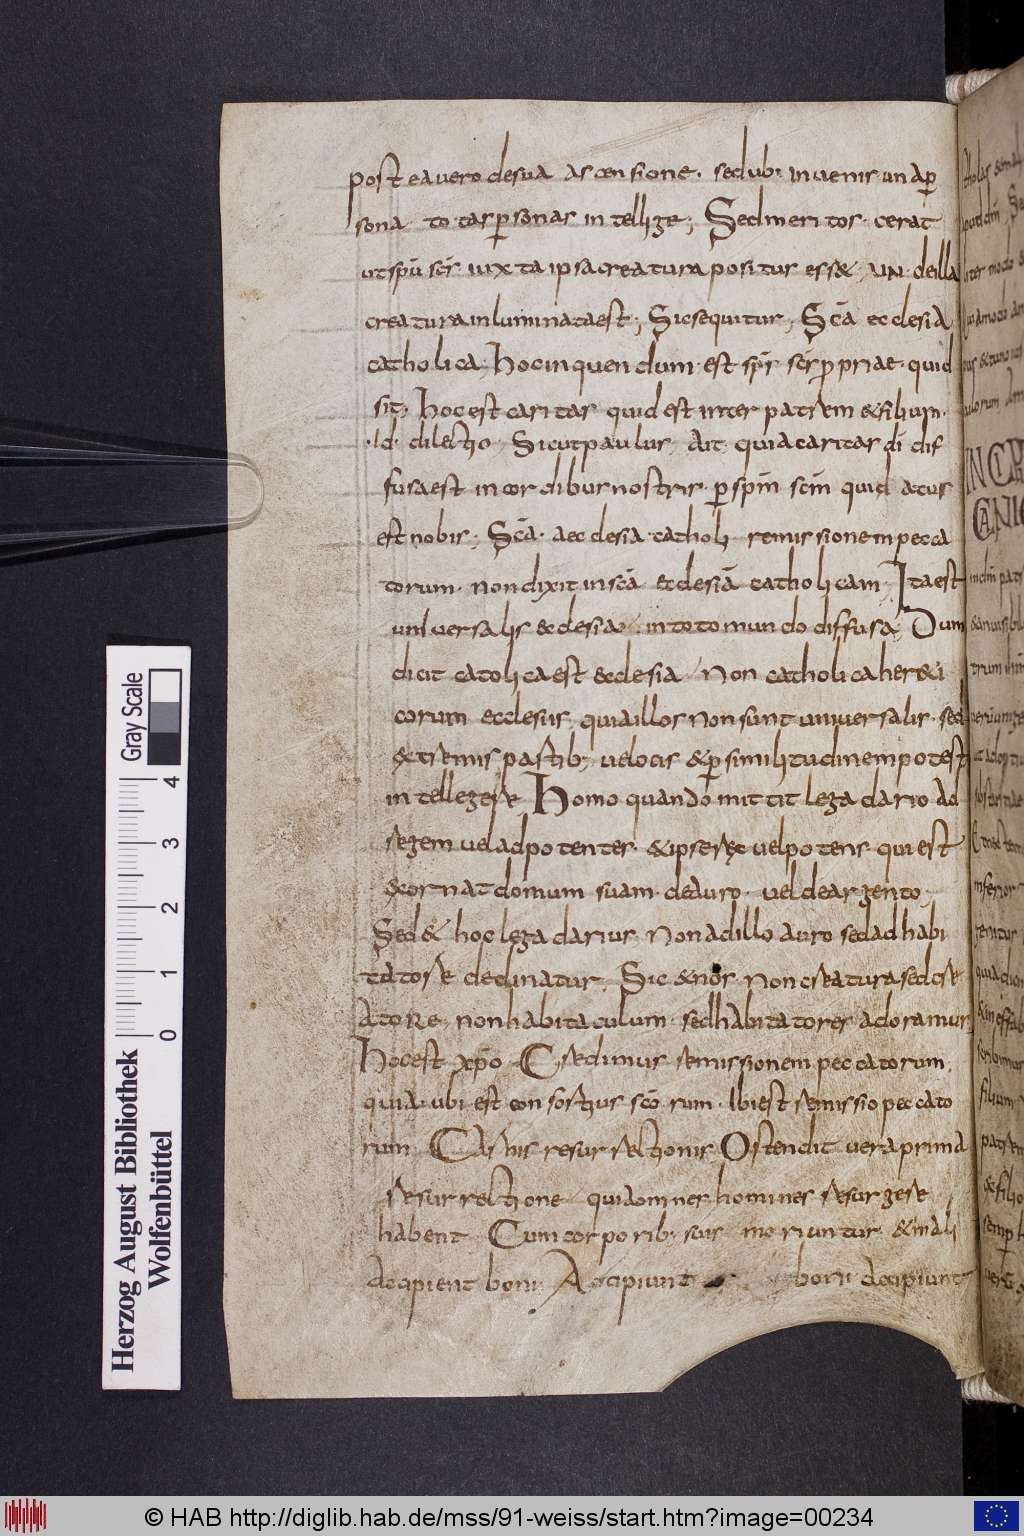 post ea uero de sua ascensione. sed ubi inuenis una per
sona totas personas intellige; Sed meritos. cerat
ut spū scī iuxta ipsa creatura positus ess& UN de illa
creatura inluminata est; Sic sequitur, Scā ecclesia
catholica, hoc inquendum est spī scī p priae quid
sit, hoc est caritas quid est inter patrem & filium.
.Id. dilectio, Sicut paulus, Ait quia caritas dī dif
fusa est in cordibus nostris p spm̄ scm̄ qui datus
est nobis; Scā. aecclesia catholi remissionem pecca
torum. non dixit in scā ecclesiā catholicam, Ita est
uniuersalis ecclesia, in toto mundo diffusa, Dum
dicit catolica est ecclesia, Non catholica her&i
corum ecclesiis, quia illos non sunt uniuersalis. sed
&tremis partib; uelocis & p similitudinem potest
intellegere, Homo quando mittit legadario ad
regem uel ad potentes &ipse rex uel potens qui est
&ornat domum suam. de auro. uel de argento,
Sed & hoc legadarius, Non ad illo auro sed ad habi
tatore declinatur, Sic & nos non creatura sed cre
atore, non habitaculum. sed habitatores adoramus,
Hoc est xp̄o Credimus remissionem peccatorum,
quia ubi est consortius scō rum. Ibi est remissio pecca to
rum, Carnis resurrectionis, Ostendit uera prima
resurrectione, quia omnes homines resurgere
habent Cum corporib; suis moriuntur &mali
Accipient boni, Accipiunt boni accipiunt
INCH
CANI
Herzog August Bibliothek
Wolfenbüttel
Gray Scale
0 1 2 3 4
© HAB http://diglib.hab.de/mss/91-weiss/start.htm?image=00234